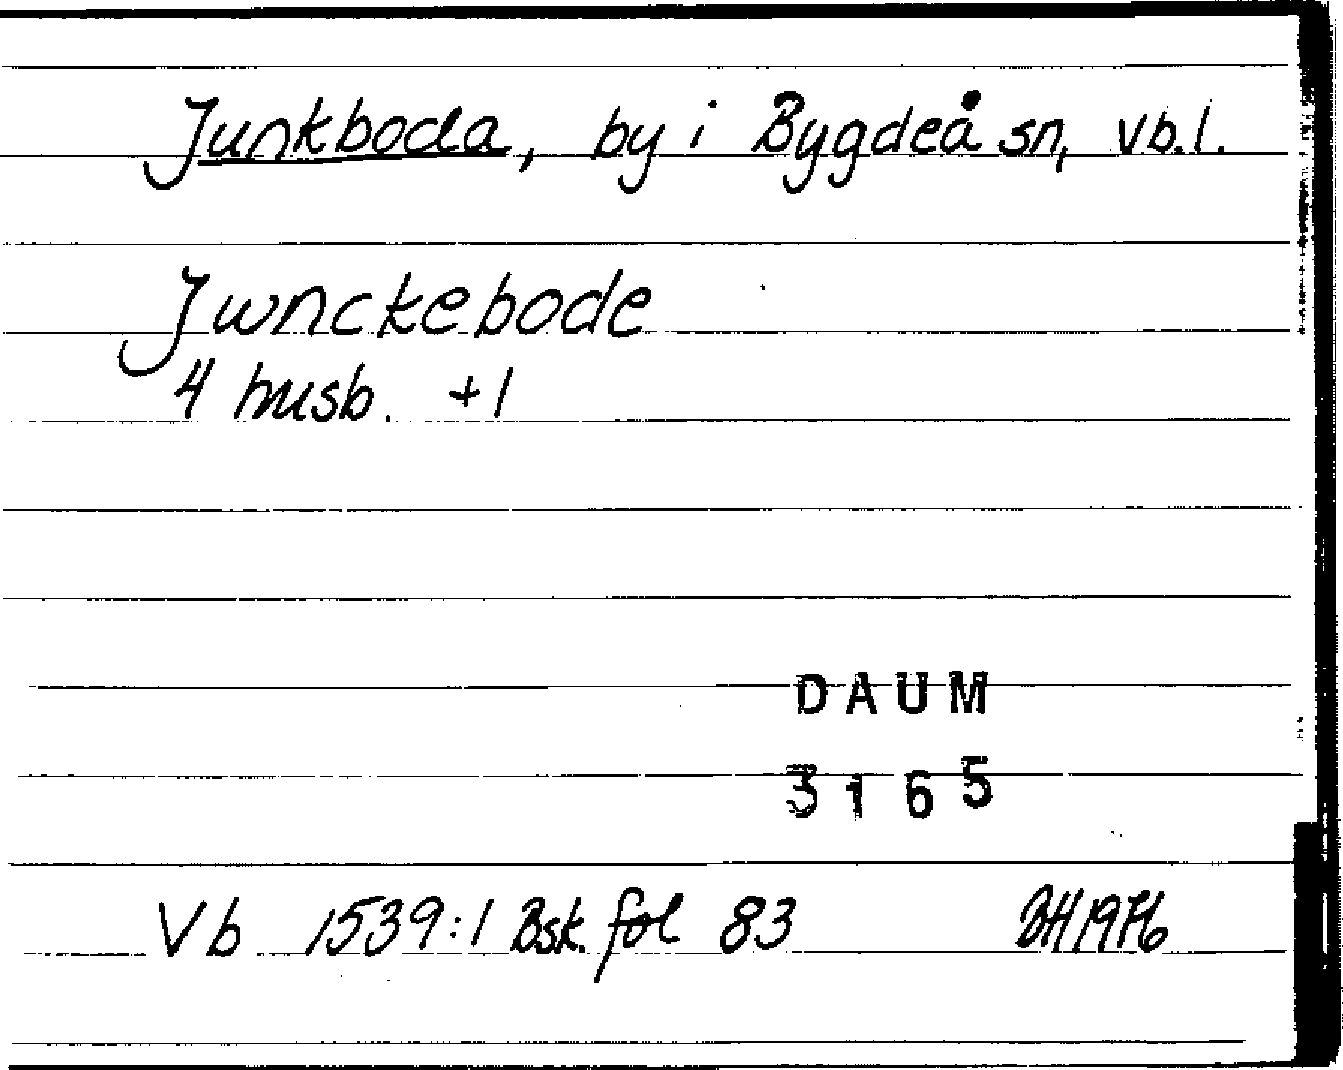 Junkboda, by i Bygdeå sn, Vb.l.
Jwnckebode
4 husb. +1
DAUM
3165
Vb 1539:1 Bsk. fol 83 BH 1976